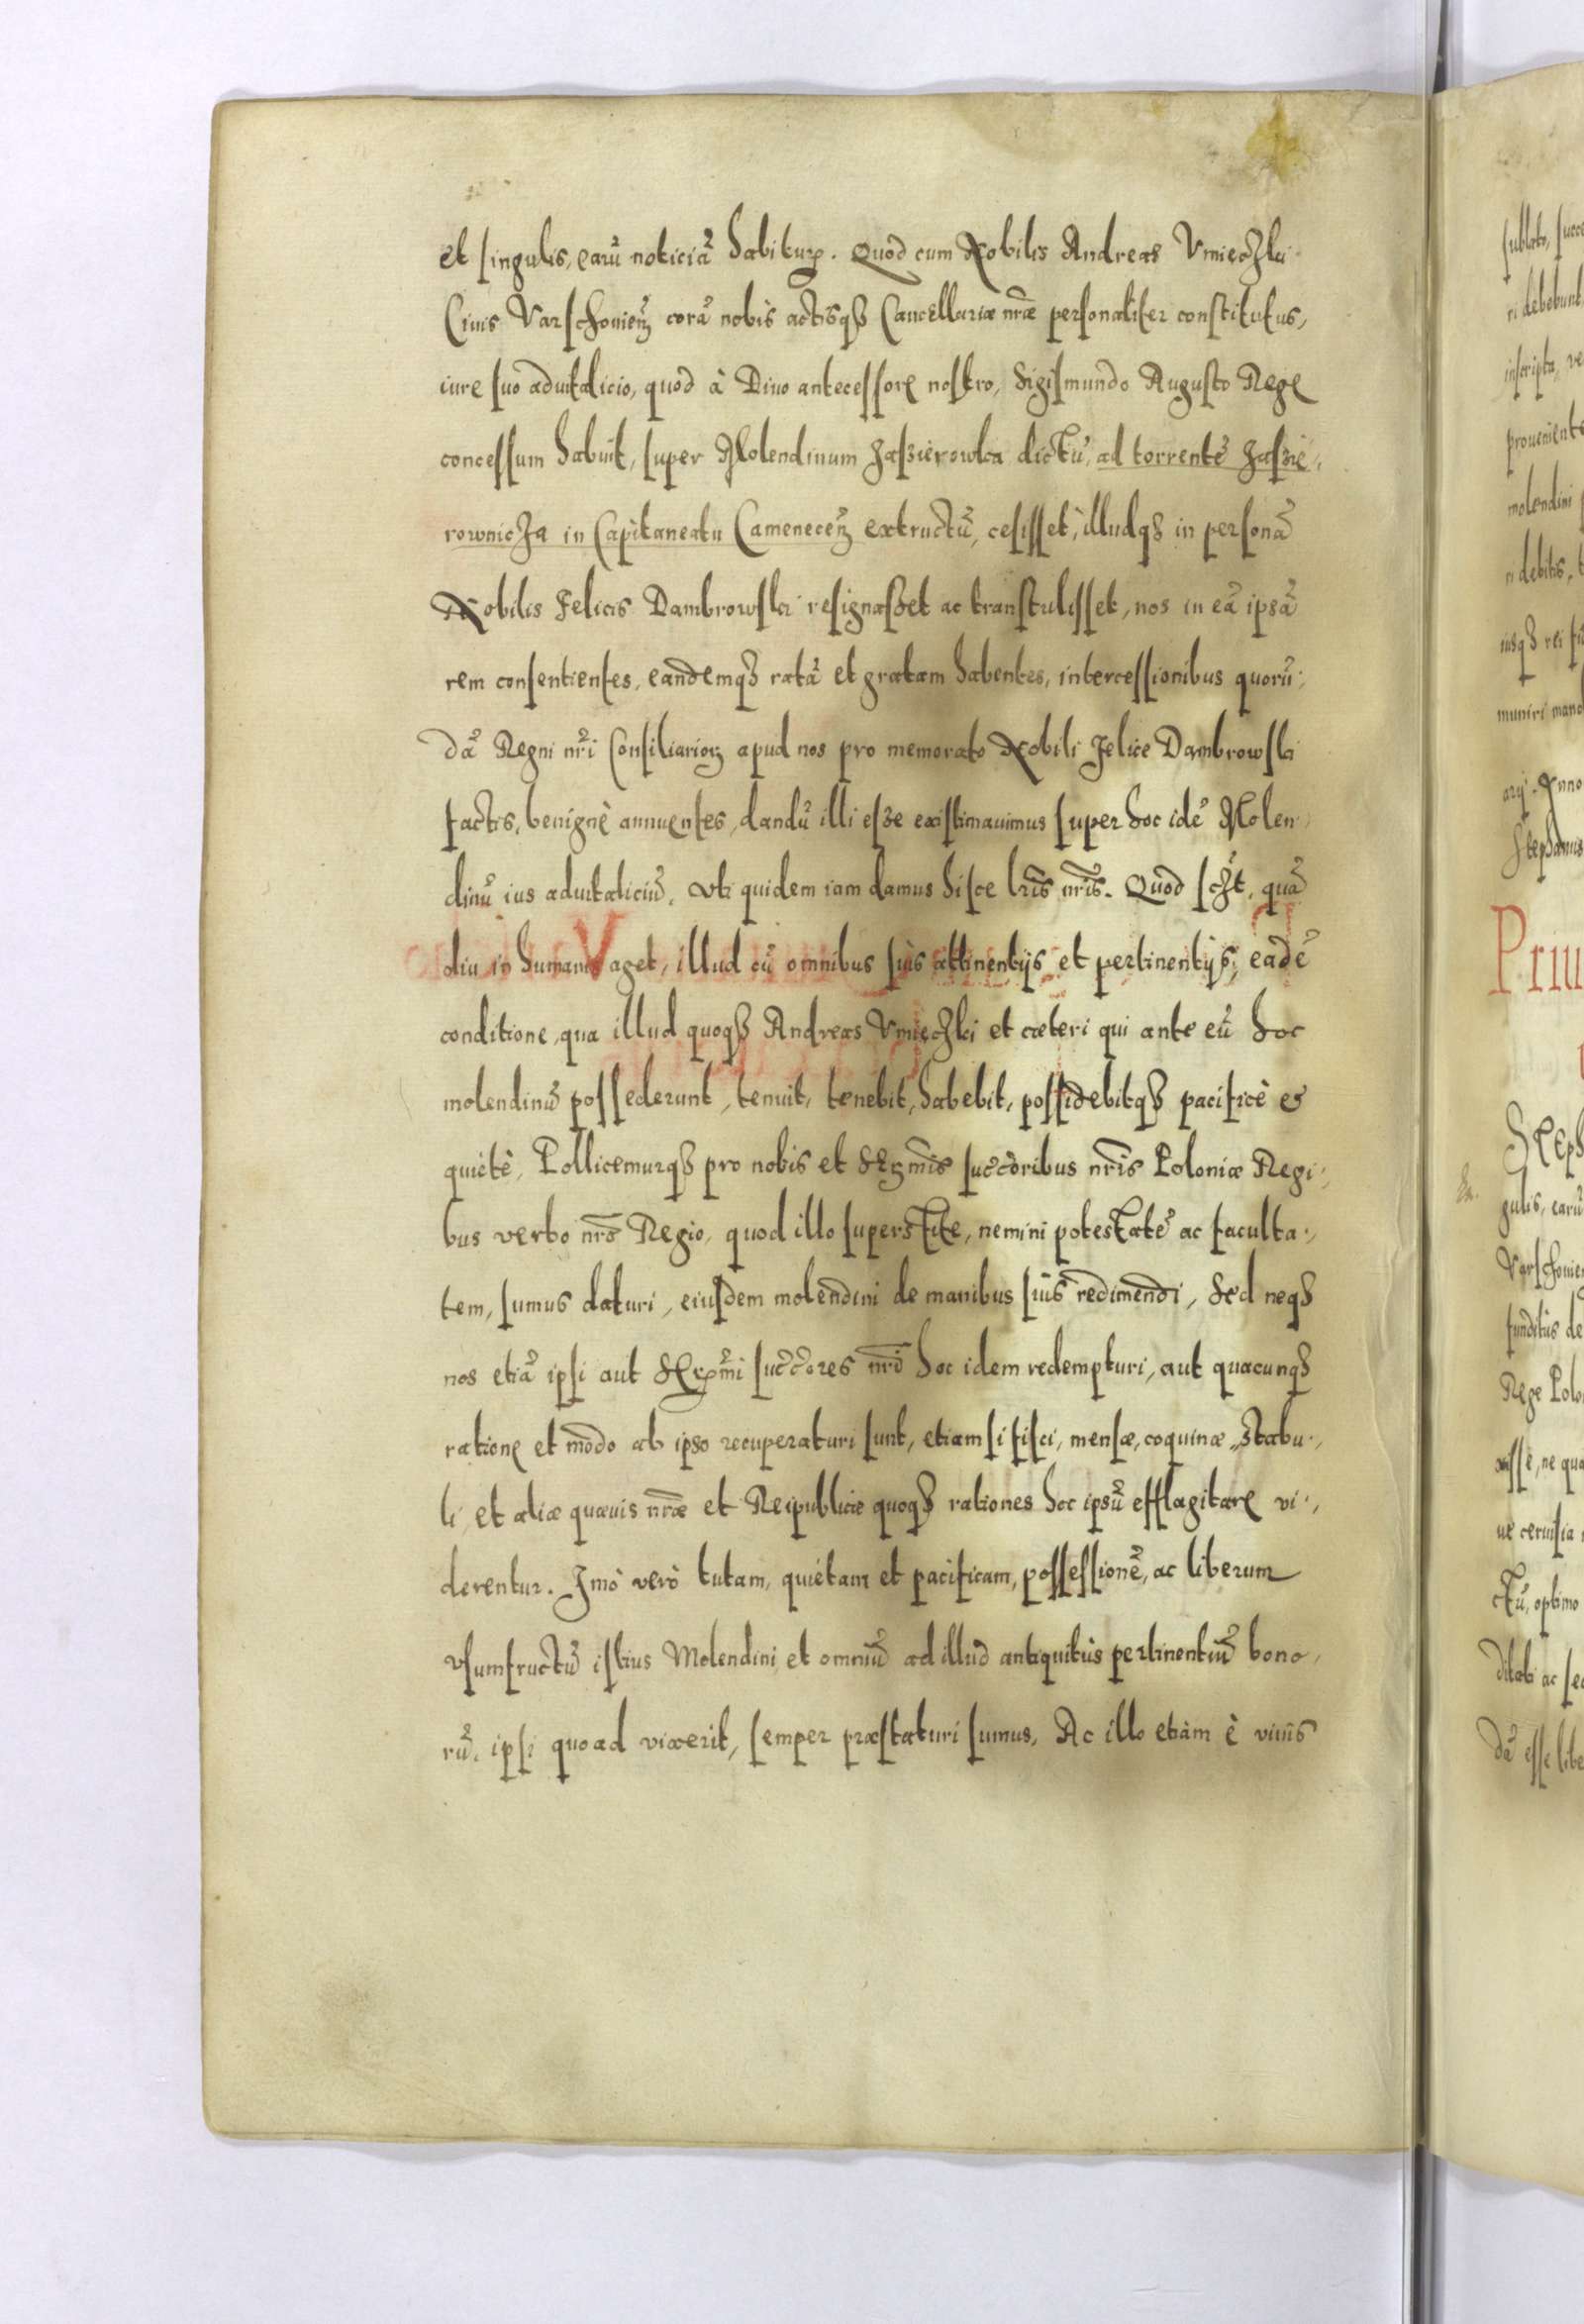 et singulis, earũ noticiã habituris. Quod cum Nobilis Andreas Vmieczki
Ciuis Varschouien̄ corã nobis actisq3 Cancellariæ nr̃æ personaliter constitutus,
iure suo aduitalicio, quod à Diuo antecessore nostro, Sigismundo Augusto Rege
concessum habuit, super Molendinum Jaszierowka dictũ, ad torrentẽ Jaszie,,
rownicza in Capitaneatu Camenecen̄ extructũ, cesisset, illudq3 in personã
Nobilis Felicis Dambrowski resignasset ac transtulisset, nos in eã ipsã
rem consentientes, eandemq3 ratã et gratam habentes, intercessionibus quorũ,,
dã Regni nr̃i Consiliarior̃ apud nos pro memorato Nobili Felice Dambrowski
factis, benignè annuentes, dandũ illi esse existimauimus super hoc idẽ Molen,,
dinũ ius aduitaliciũ, vti quidem iam damus hisce lr̃is nr̃is. Quod sczt, quã
diu in humanis aget, illud cũ omnibus suis attinentijs et pertinentijs, eadẽ
conditione, qua illud quoq3 Andreas Vmieczki et cæteri qui ante eũ hoc
molendinũ possederunt, tenuit, tenebit, habebit, possidebitq3 pacificè &
quietè, Pollicemurq3 pro nobis et Ser̃mis succ̃oribus nr̃is Poloniæ Regi,,
bus verbo nr̃o Regio, quod illo superstite, nemini potestatẽ ac faculta,,
tem, sumus daturi, eiusdem molendini de manibus suis redimendi, Sed neq3
nos etiã ipsi aut Ser̃mi succ̃ores nr̃i hoc idem redempturi, aut quacunq3
ratione et modo ab ipso recuperaturi sunt, etiamsi fisci, mensæ, coquinæ, stabu,,
li, et aliæ quæuis nr̃æ et Reipublicæ quoq3 rationes hoc ipsũ efflagitare vi,,
derentur. Imò verò tutam, quietam et pacificam, possessionẽ, ac liberum
vsumfructũ istius Molendini et omniũ ad illud antiquitùs pertinentiũ bono,,
rũ, ipsi quoad vixerit, semper præstaturi sumus, Ac illo etiàm è viuis